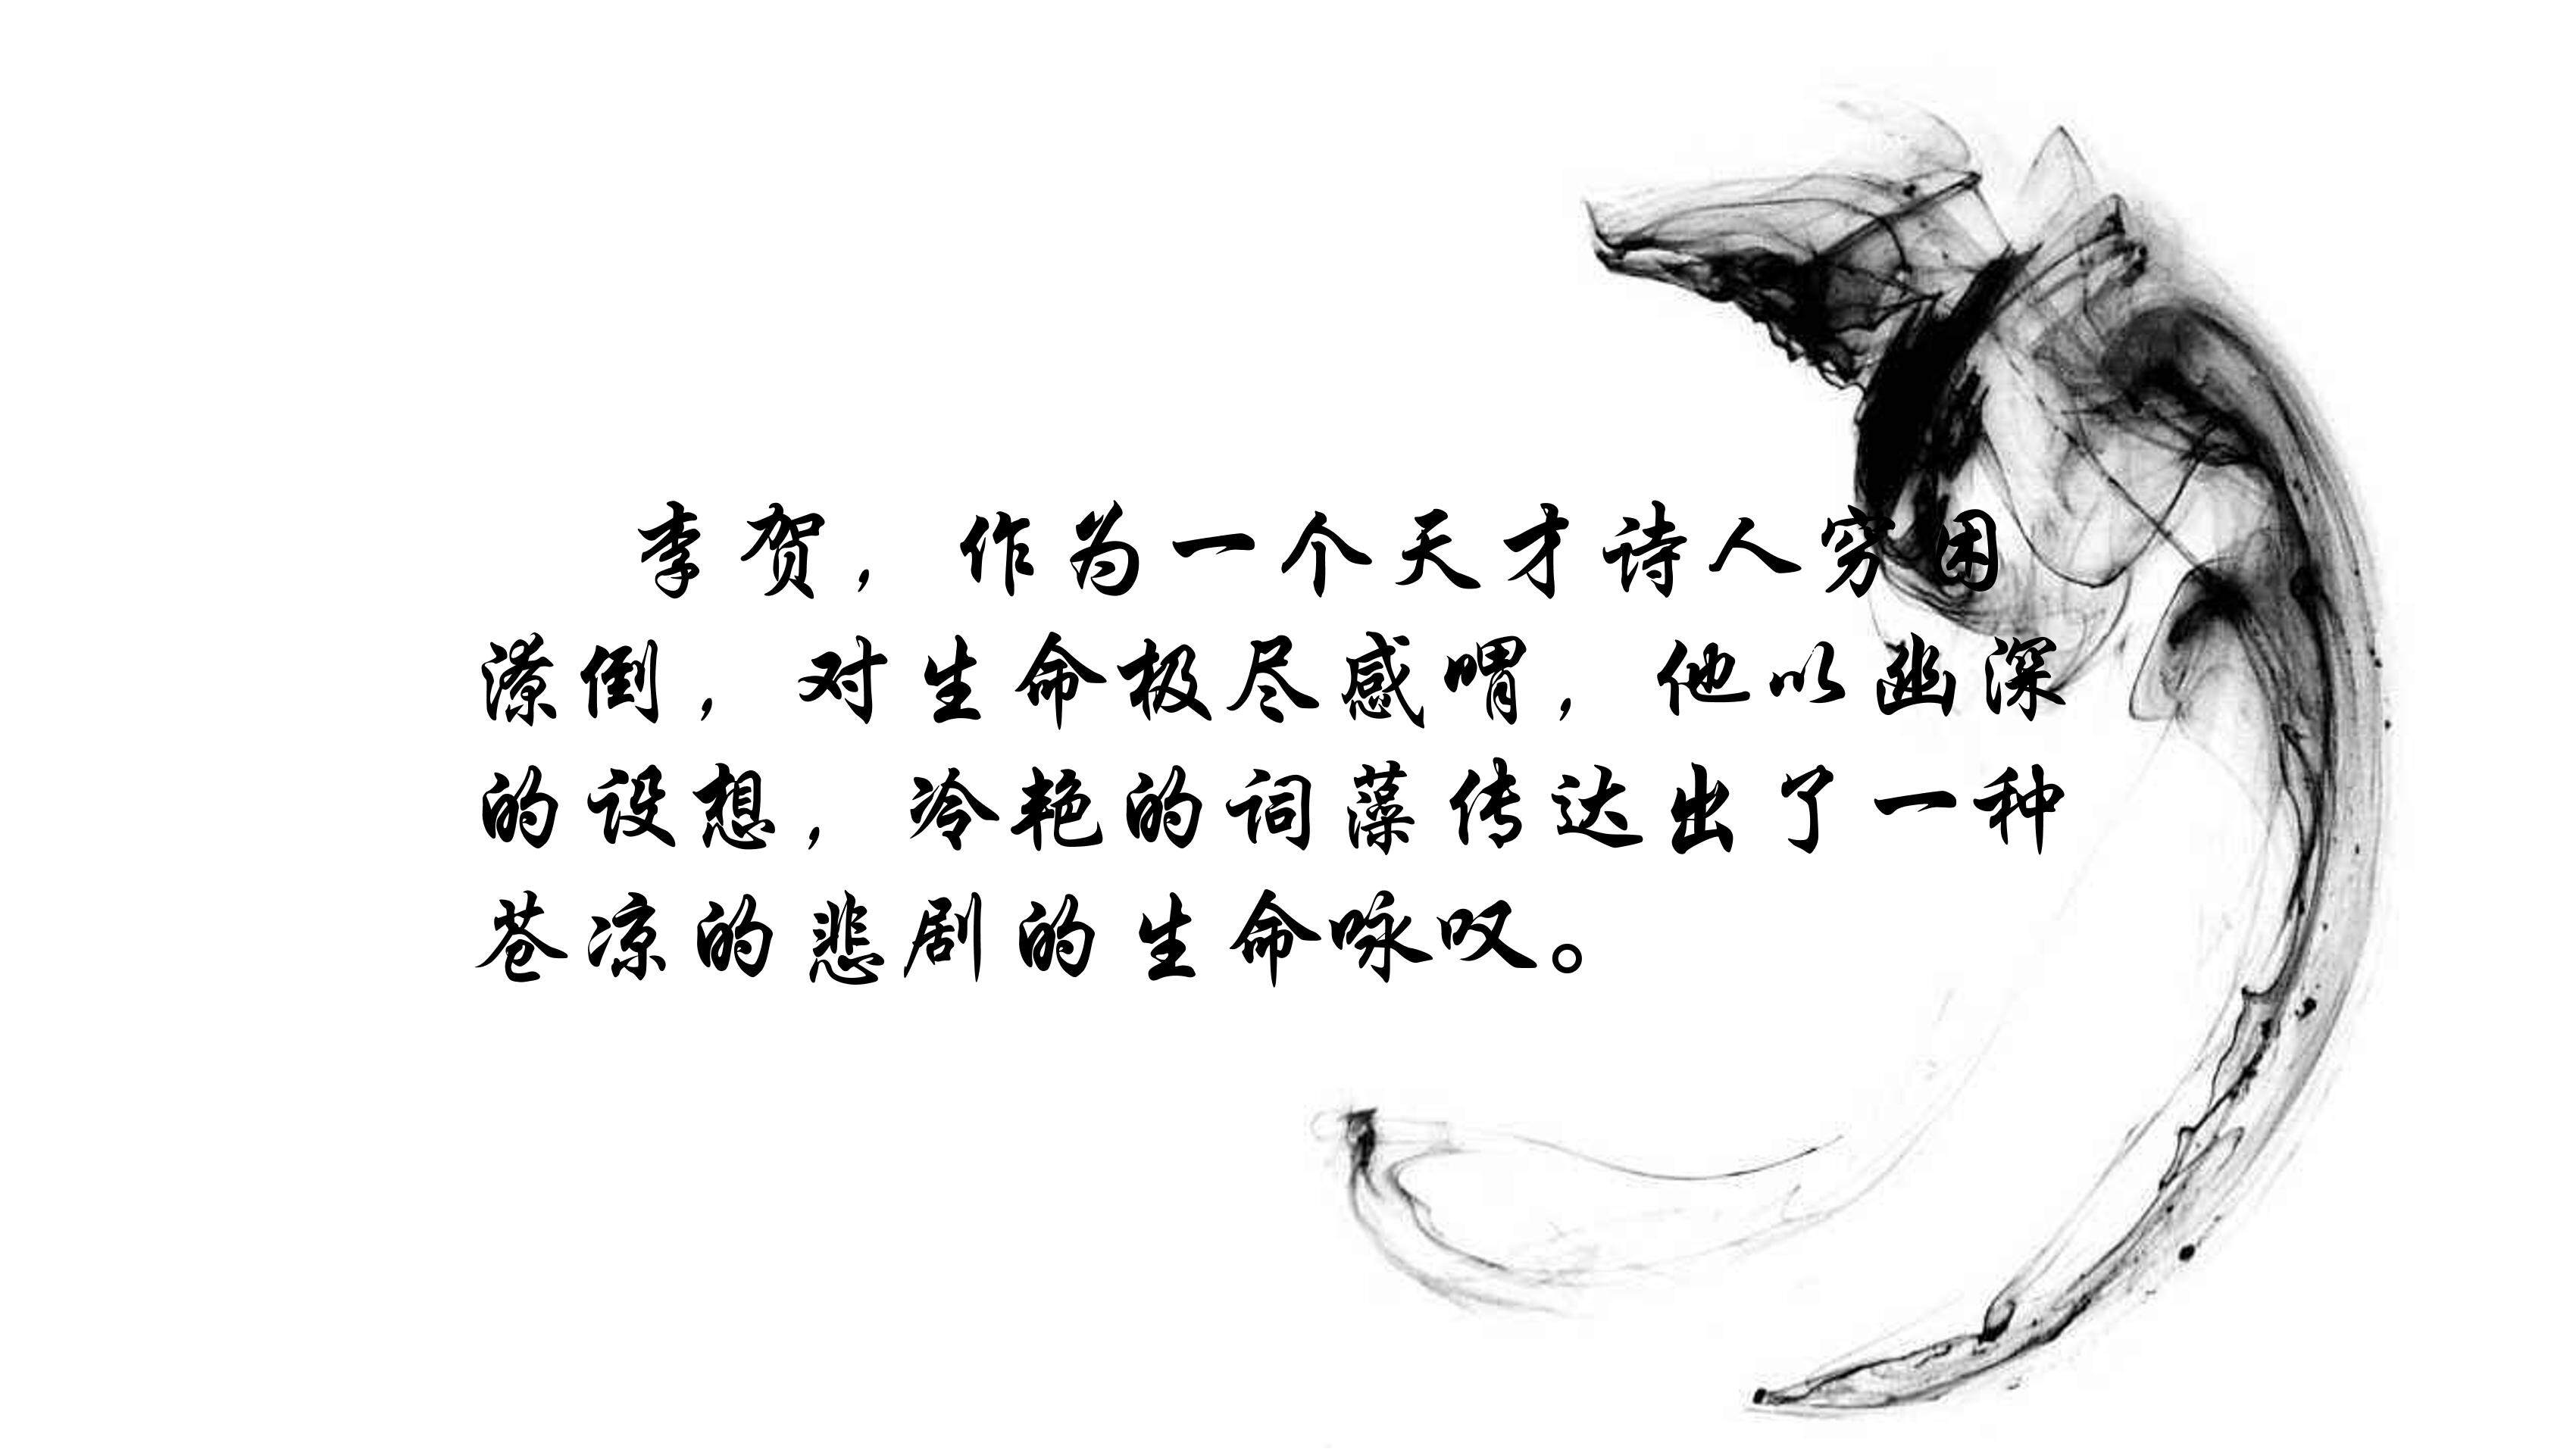 李贺，作为一个天才诗人穷困
潦倒，对生命极尽感喟，他以幽深
的设想，冷艳的词藻传达出了一种
苍凉的悲剧的生命咏叹。